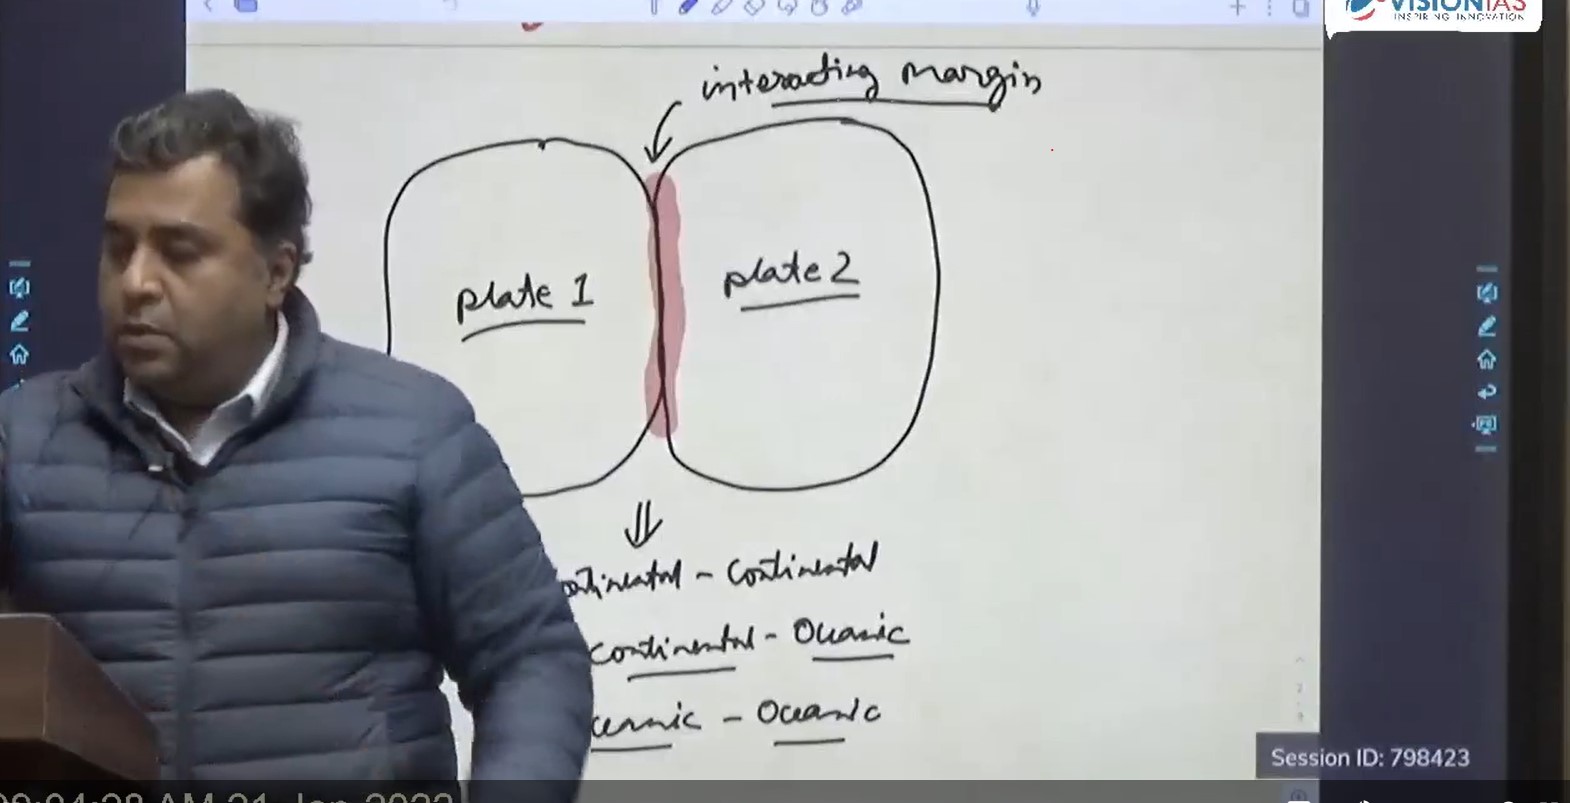 VISIONIAS
INSPIRING INNOVATION
interacting margin
plate 1
plate 2
ontinental - Continental
continental - Oceanic
ceanic - Oceanic
Session ID: 798423